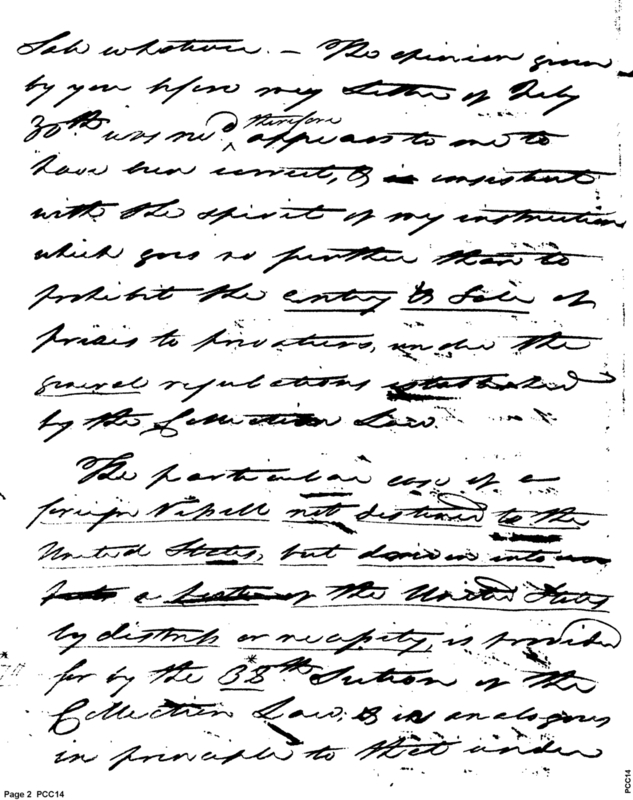 Sale whatever. — The opinion given
by you before my Letter of July
30th was rec'd, therefore appears to me to
have been correct, & is consistent
with the spirit of my instructions
which goes no further than to
prohibit the entry & Sale of
prizes to privateers, under the
general regulations established
by the Collection Law.
The particular case of a
foreign Vessell not destined to the
United States, but driven into
a of the United States
by distress or necessity, is provided
for by the 38th Section of the
Collection Law, & is analogous
in principle to that under
*
Page 2 PCC14
PCC14